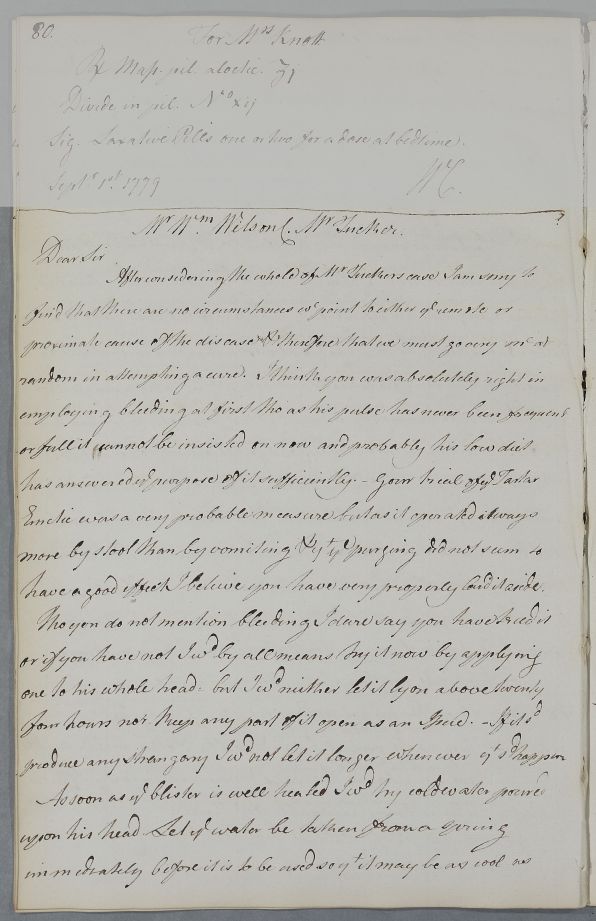 80.
For Mrs Knott
℞ Mass. pil. aloetic. ʒj
Divide in pil. No xij
Sig. Laxative Pills one or two for a dose at bedtime.
Septr 1st 1779
WC.
Mr Wm Wilson C. Mr Tucker.
Dear Sir
After considering the whole of Mr Tuckers case I am sorry to
find that there are no circumstances wc point to either ye remote or
proximate cause of the disease & therefore that we must go very mc at
random in attempting a cure. I think you was absolutely right in
employing bleeding at first tho as his pulse has never been frequent
or full it cannot be insisted on now and probably his low diet
has answered ye purpose of it sufficiently. - Your trial of ye Tartar
Emetic was a very probable measure but as it operated always
more by stool than by vomiting & yt ye purging did not seem to
have a good effect I believe you have very properly laid it aside.
Tho you do not mention bleeding I dare say you have tried it
or if you have not I wd by all means try it now by applying
one to his whole head: but I wd neither let it ly on above twenty
four hours nor keep any part of it open as an Issue. - If it sd
produce any strangury I wd not let it longer whenever yt sd happen
As soon as ye blister is well healed I wd try cold water poured
upon his head Let ye water be taken from a spring
immediately before it is to be used so yt it may be as cool as